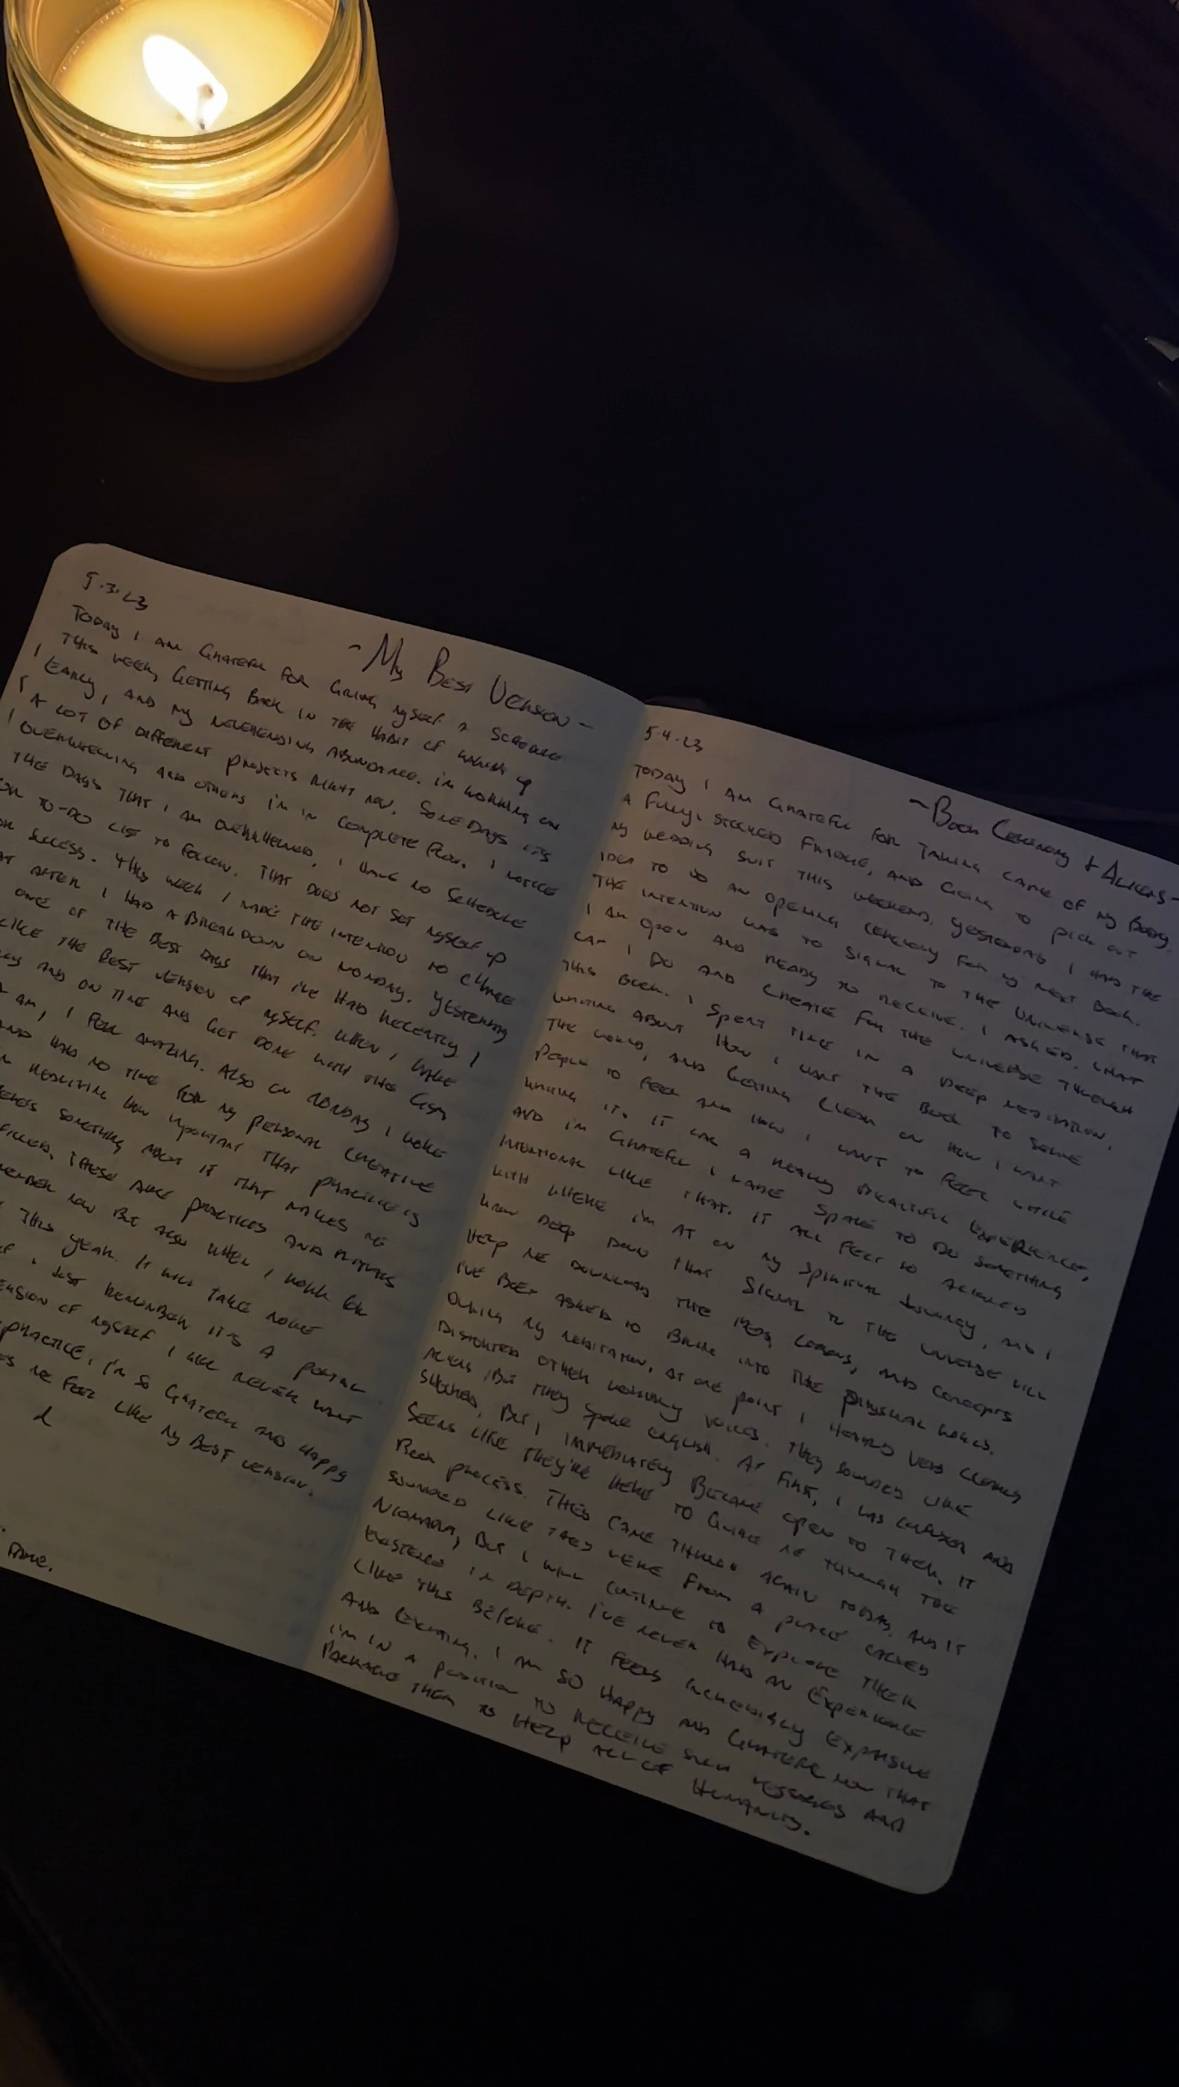 5.3.23
~ My Best Version ~
Today I am Grateful for Giving myself a schedule
this week, Getting Back in the Habit of waking up
early, and my neverending Abundance. I'm working on
A lot of different projects right now. Some Days it's
overwhelming and others I'm in complete flow. I notice
the days that I am overwhelmed, I have no schedule
or to-do list to follow. That does not set myself up
for success. This week I made the intention to change
that after I had a breakdown on Monday. Yesterday
one of the best days that I've had recently. I
like the Best version of myself. When I wake
and on time and get done with the Gym
am, I feel amazing. Also on Monday I woke
and had no time for my personal creative
realizing how important that practice is
something about it that makes me
these are practices and
remember now but also when I
this year. It will take more
Just remember it's a portal
version of myself I will never want
practice. I'm so Grateful and Happy
me feel like my Best version.
5.4.23
~ Book Ceremony + Aliens ~
Today I am Grateful for taking care of my Body,
a fully stocked fridge, and Going to pick out
my wedding suit this weekend. Yesterday I had the
idea to do an opening ceremony for my next Book.
The intention was to signal to the Universe that
I am open and ready to receive. I asked, what
can I do and create for the universe through
this book. I spent time in a deep meditation,
writing about how I want the Book to serve
the world, and Getting clear on how I want
people to feel and how I want to feel while
writing it. It was a really Beautiful Experience,
and I'm Grateful I made space to do something
intentional like that. It all feels so aligned
with where I'm at on my spiritual journey, and I
know deep down that signal to the universe will
help me download the lessons, and concepts
I've been asked to Bring into the physical world.
During my meditation, at one point I heard very clearly
Distorted other voices. They sounded like
Aliens, But they spoke english. At first, I was confused and
But I immediately Became open to them. It
seems like they're here to Guide me through the
Book process. They came through again today, and it
sounded like they were from a place called
But I will continue to explore their
existence in depth. I've never had an Experience
like this before. It feels incredibly expansive
and exciting. I am so happy and Grateful now that
I'm in a position to receive such messages and
package them to help all of Humanity.